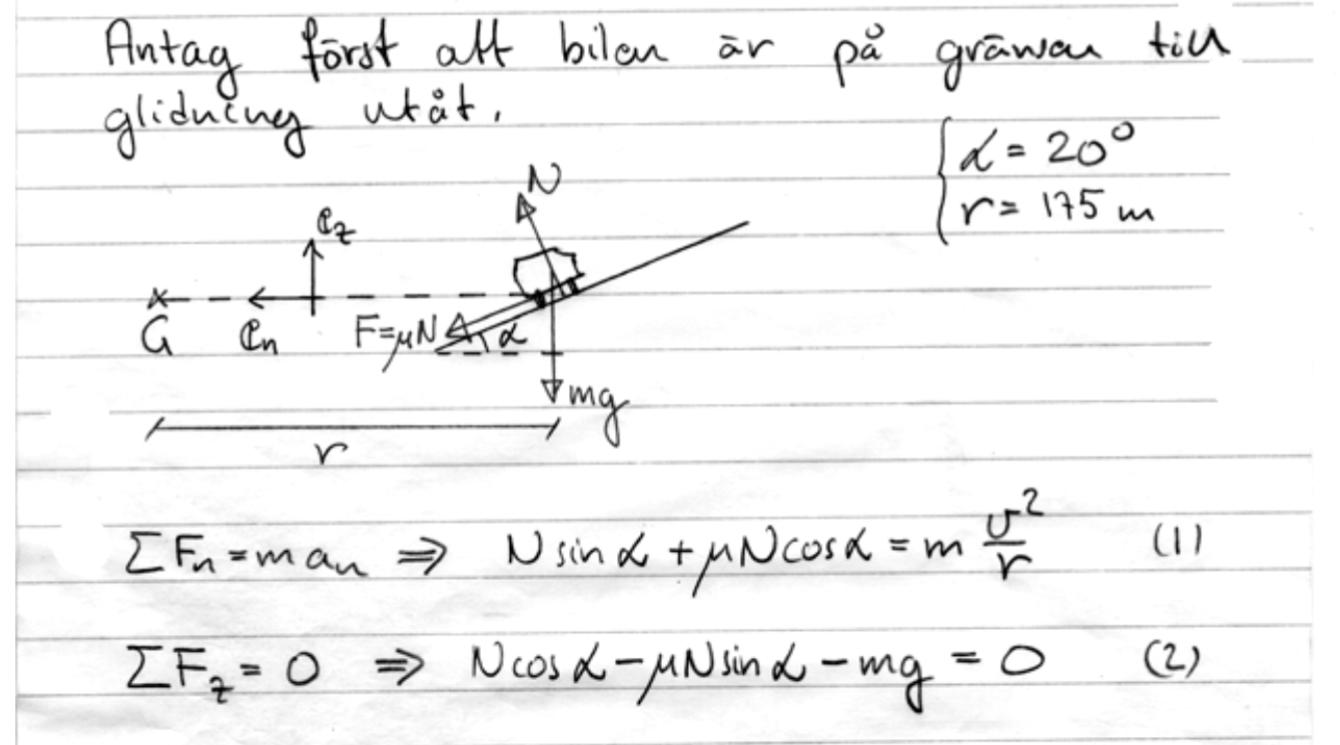 Antag först att bilen är på gränsen till
glidning utåt.
α = 20°
r = 175 m
N
e_z
G e_n F=μN α
mg
r
ΣF_n = m a_n ⇒ N sin α + μN cos α = m v²/r (1)
ΣF_z = 0 ⇒ N cos α - μN sin α - mg = 0 (2)